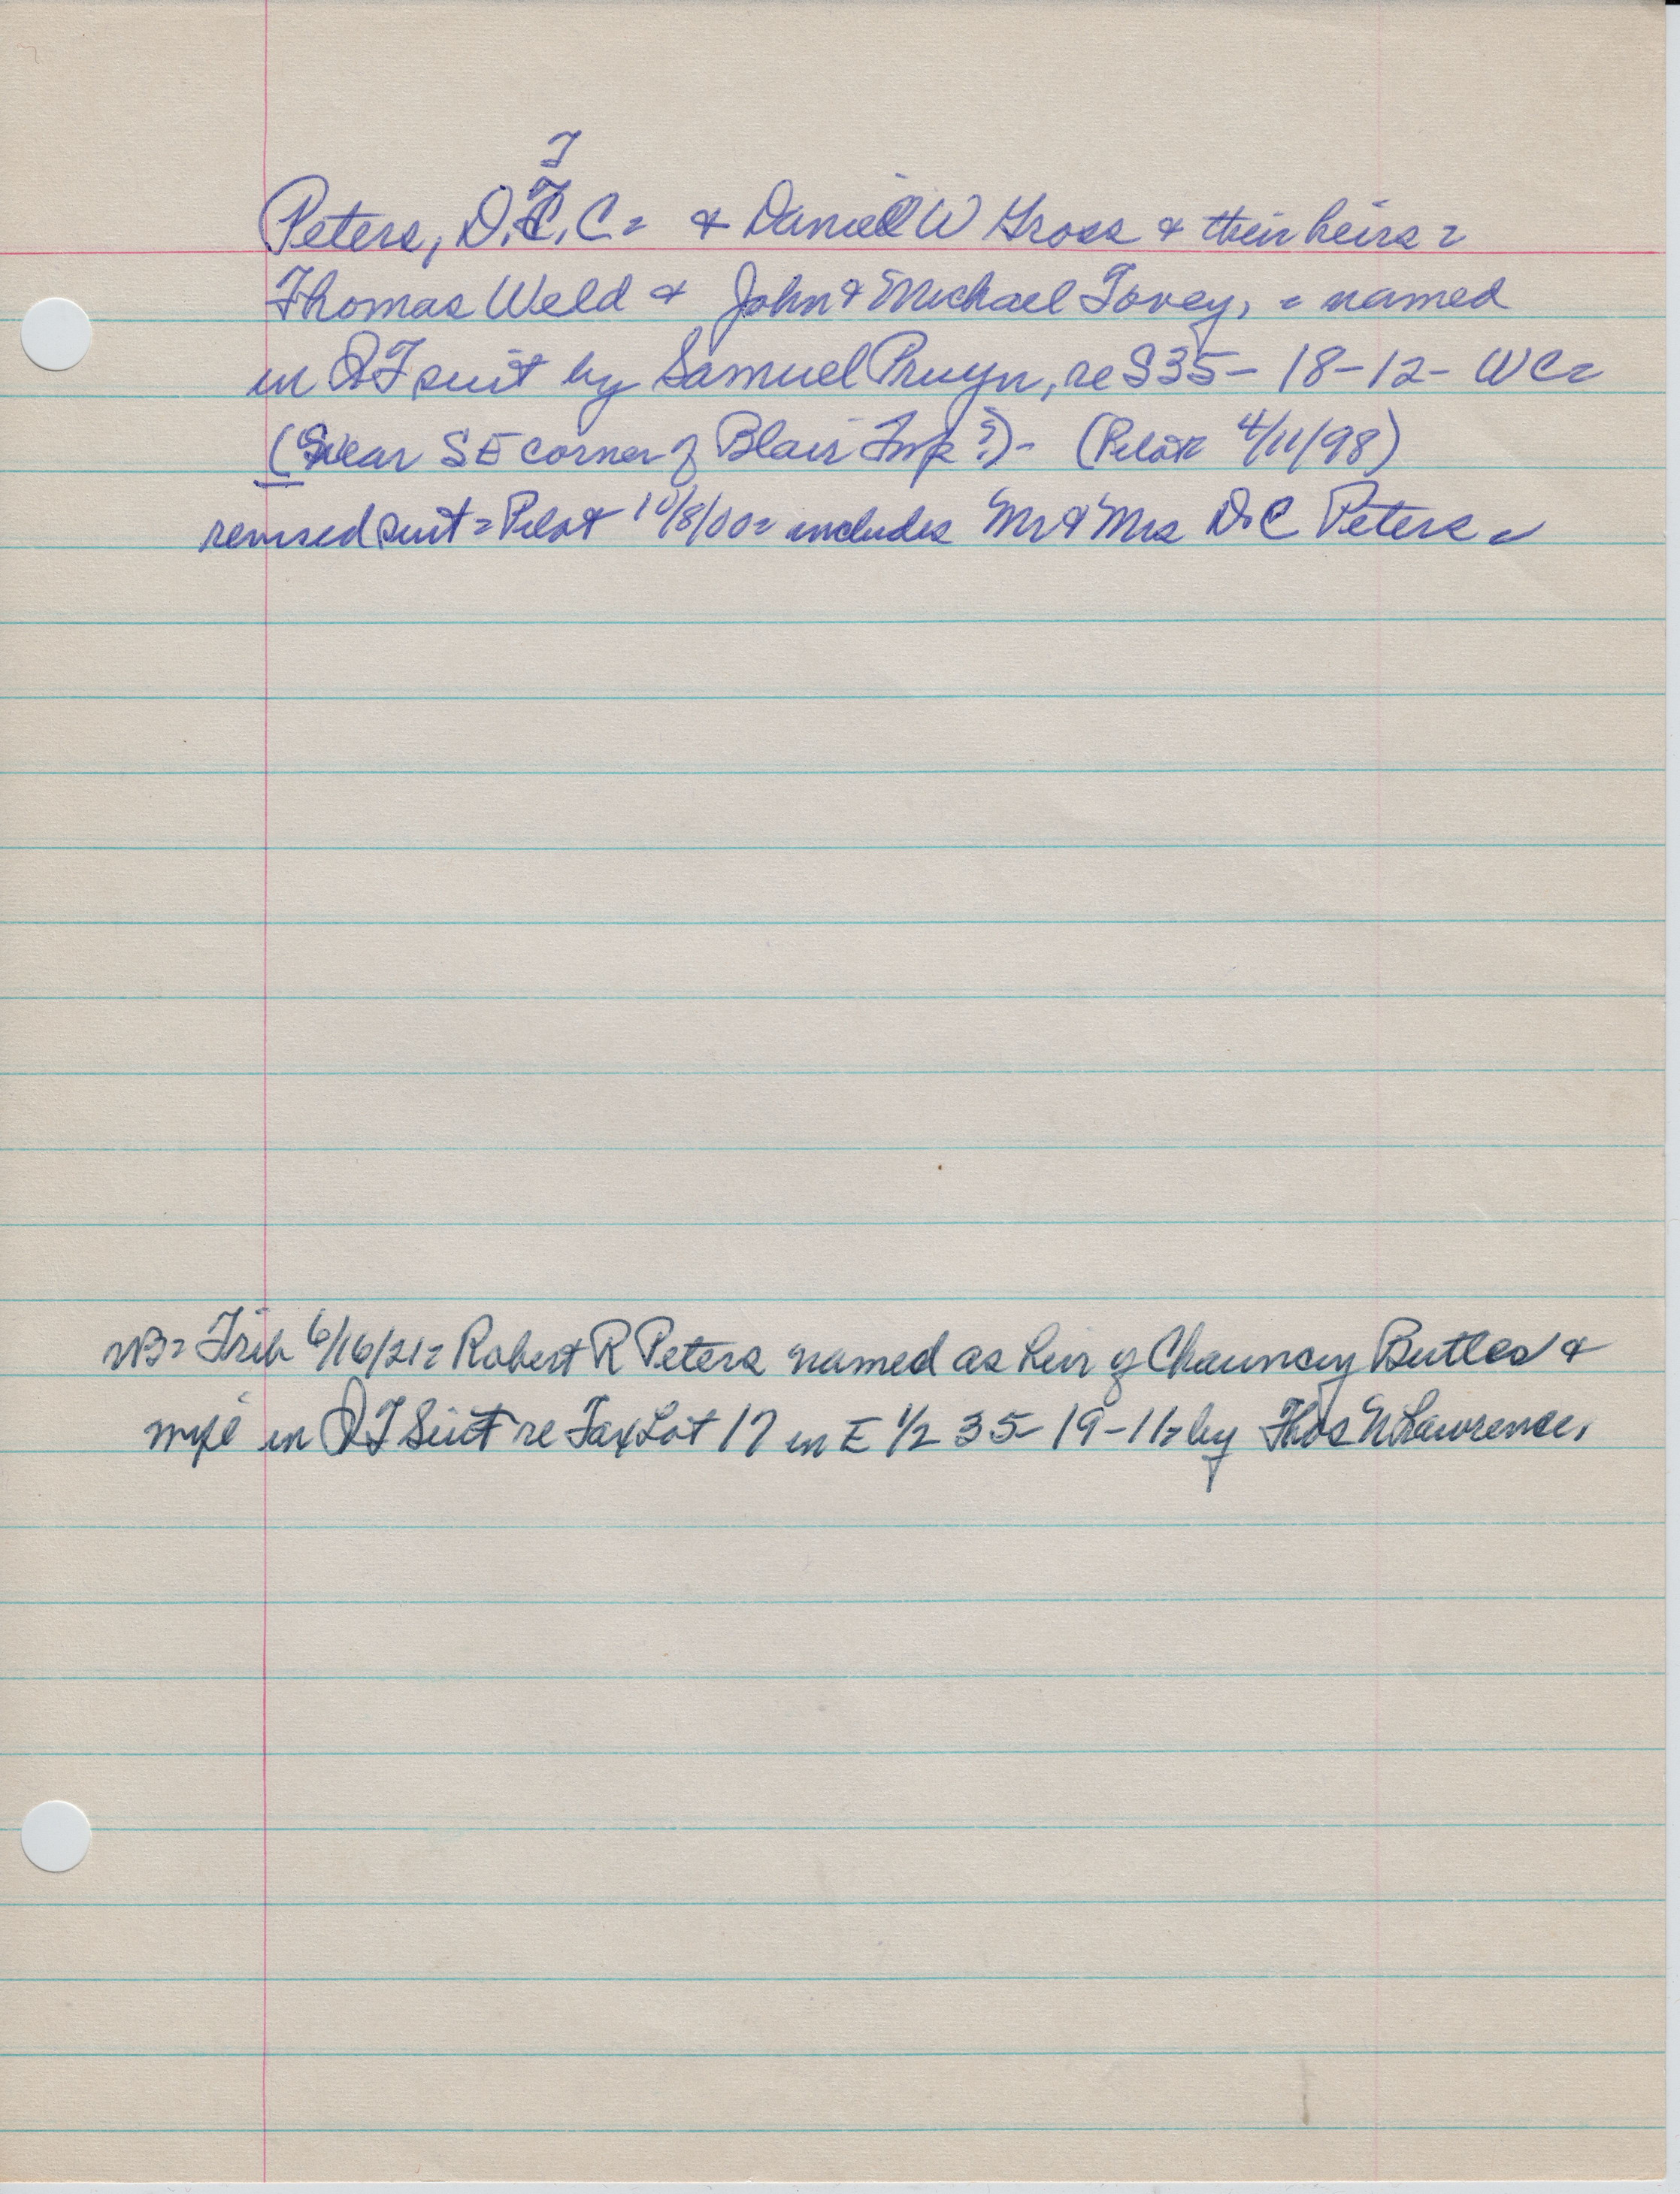 T
Peters, D.T.C. = & Daniel W Gross & their heirs =
Thomas Weld & John & Michael Tovey, = named
in QT suit by Samuel Pruyn, re S35- 18-12- WC=
(near SE corner of Blair Twp?)- (Pilot 4/11/98)
revised suit = Pilot 10/8/00= includes Mr & Mrs D.C Peters =
NB= Trib 6/16/21= Robert R Peters named as heir of Chauncey Butler &
wife in QT Suit re Tax Lot 17 in E 1/2 35- 19-11= by Thos N Lawrence.